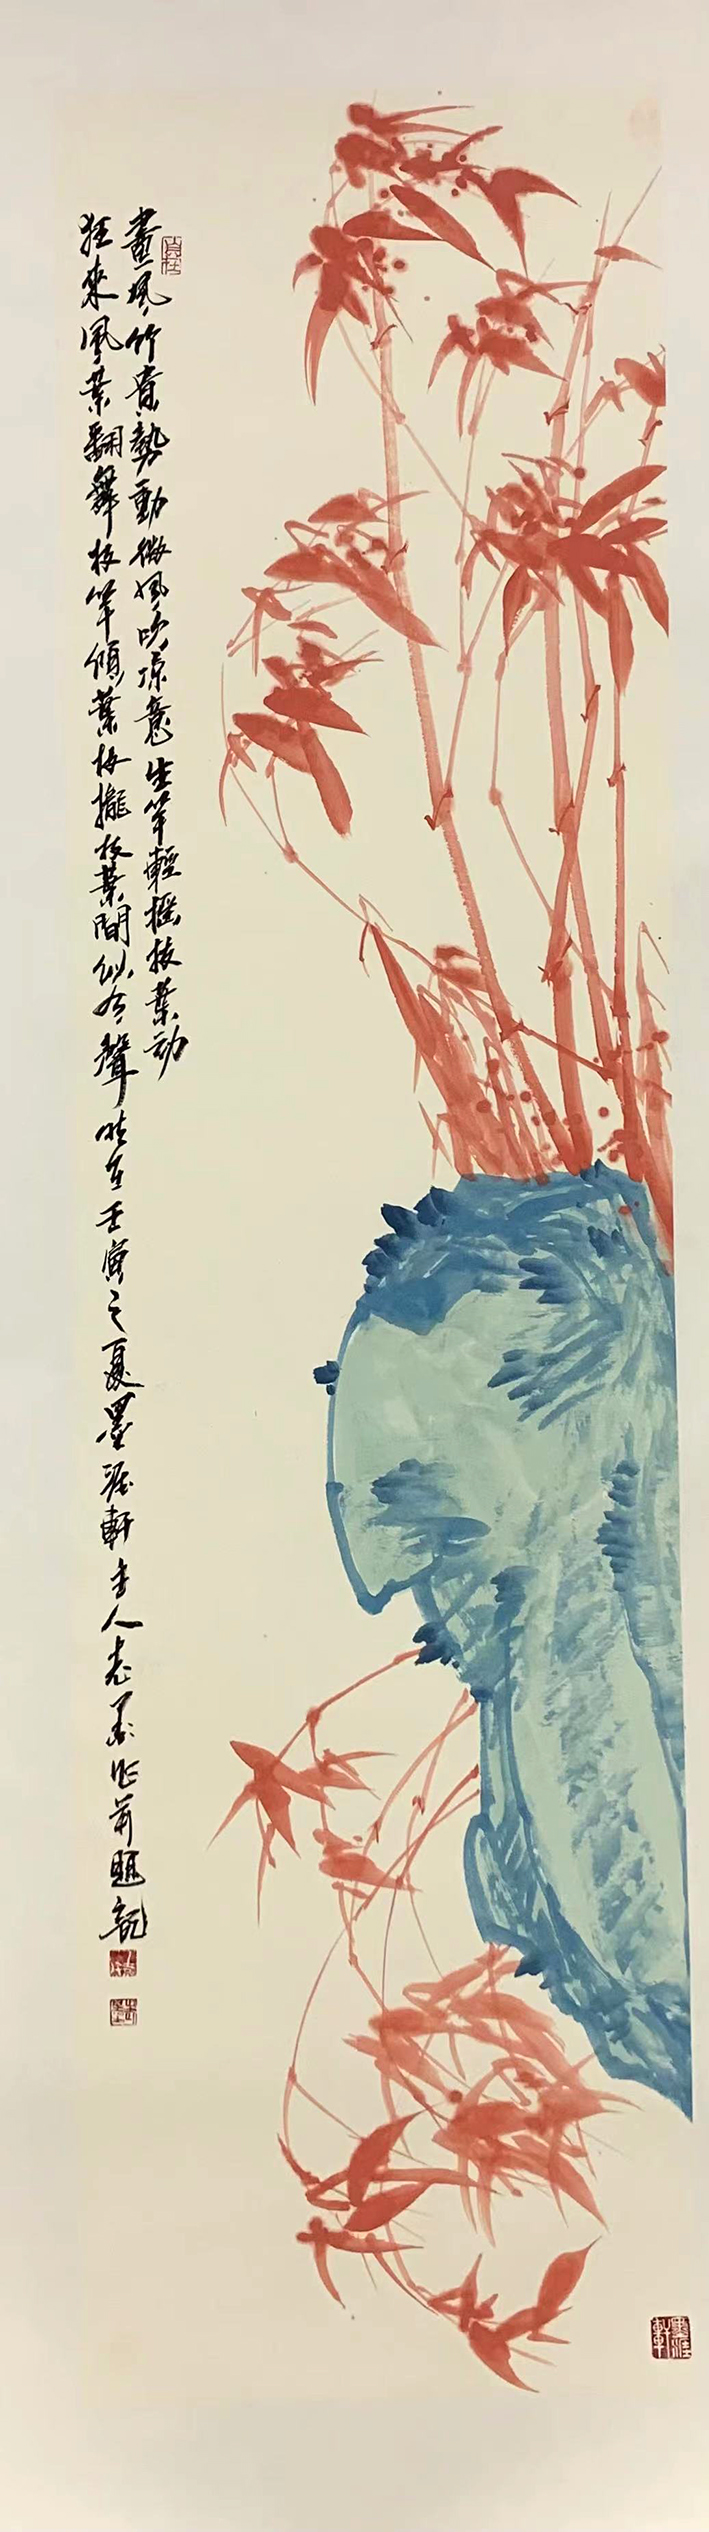 畫風竹貴勢動微風吹涼意生竿輕摇枝葉动
狂来風葉翻舞枝竿傾葉梅攏枝葉間似有聲時在壬寅之夏墨涯軒主人志墨作并題記
墨涯軒